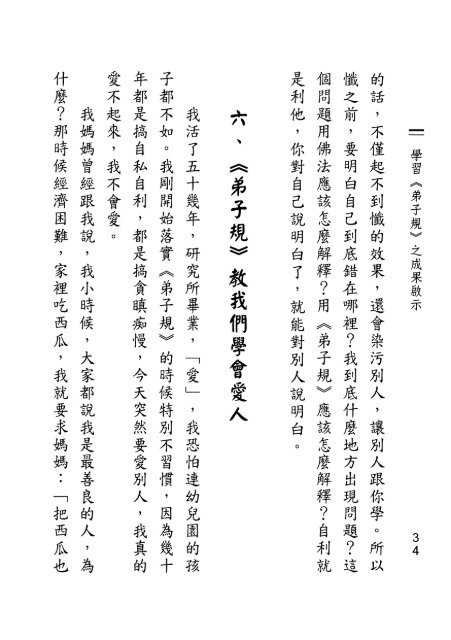 學習《弟子規》之成果啟示
34
的話，不僅起不到懺的效果，還會染污別人，讓別人跟你學。所以
懺之前，要明白自己到底錯在哪裡？我到底什麼地方出現問題？這
個問題用佛法應該怎麼解釋？用《弟子規》應該怎麼解釋？自利就
是利他，你對自己說明白了，就能對別人說明白。
六、《弟子規》教我們學會愛人
我活了五十幾年，研究所畢業，「愛」，我恐怕連幼兒園的孩
子都不如。我剛開始落實《弟子規》的時候特別不習慣，因為幾十
年都是搞自私自利，都是搞貪瞋痴慢，今天突然要愛別人，我真的
愛不起來，我不會愛。
我媽媽曾經跟我說，我小時候，大家都說我是最善良的人，為
什麼？那時候經濟困難，家裡吃西瓜，我就要求媽媽：「把西瓜也